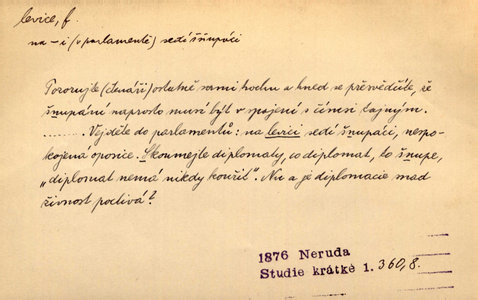 levice, f.
na -i (v parlamentě) sedí šňupáci
Pozorujte (čtenáři) ostatně sami trochu a hned se přesvědčíte, že
šňupání naprosto musí být v spojení s čímsi tajným.
....... Vejděte do parlamentů: na levici sedí šňupáci, nespo-
kojená oposice. Zkoumejte diplomaty, co diplomat, to šňupe,
„diplomat nemá nikdy kouřit". Nu a je diplomacie snad
živnost poctivá?
1876 Neruda
Studie krátké 1. 360,8.